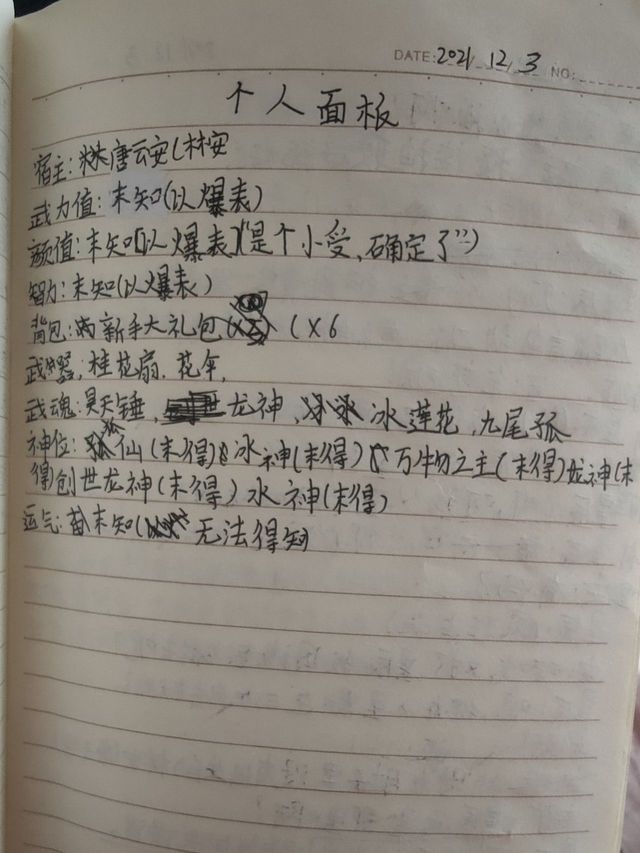 DATE: 2021.12.3 NO:
个人面板
宿主: 唐云安(林安
武力值: 未知(以爆表)
颜值: 未知[以爆表]("是个小受,确定了")
智力: 未知(以爆表)
背包: 新手大礼包 (×6
武器: 桂花扇, 花伞,
武魂: 昊天锤, 龙神, 冰莲花, 九尾孤
神位: 狐仙(未得) 冰神(未得) 万物之主(未得)龙神(未
得)创世龙神(未得) 水神(未得)
运气: 未知( 无法得知